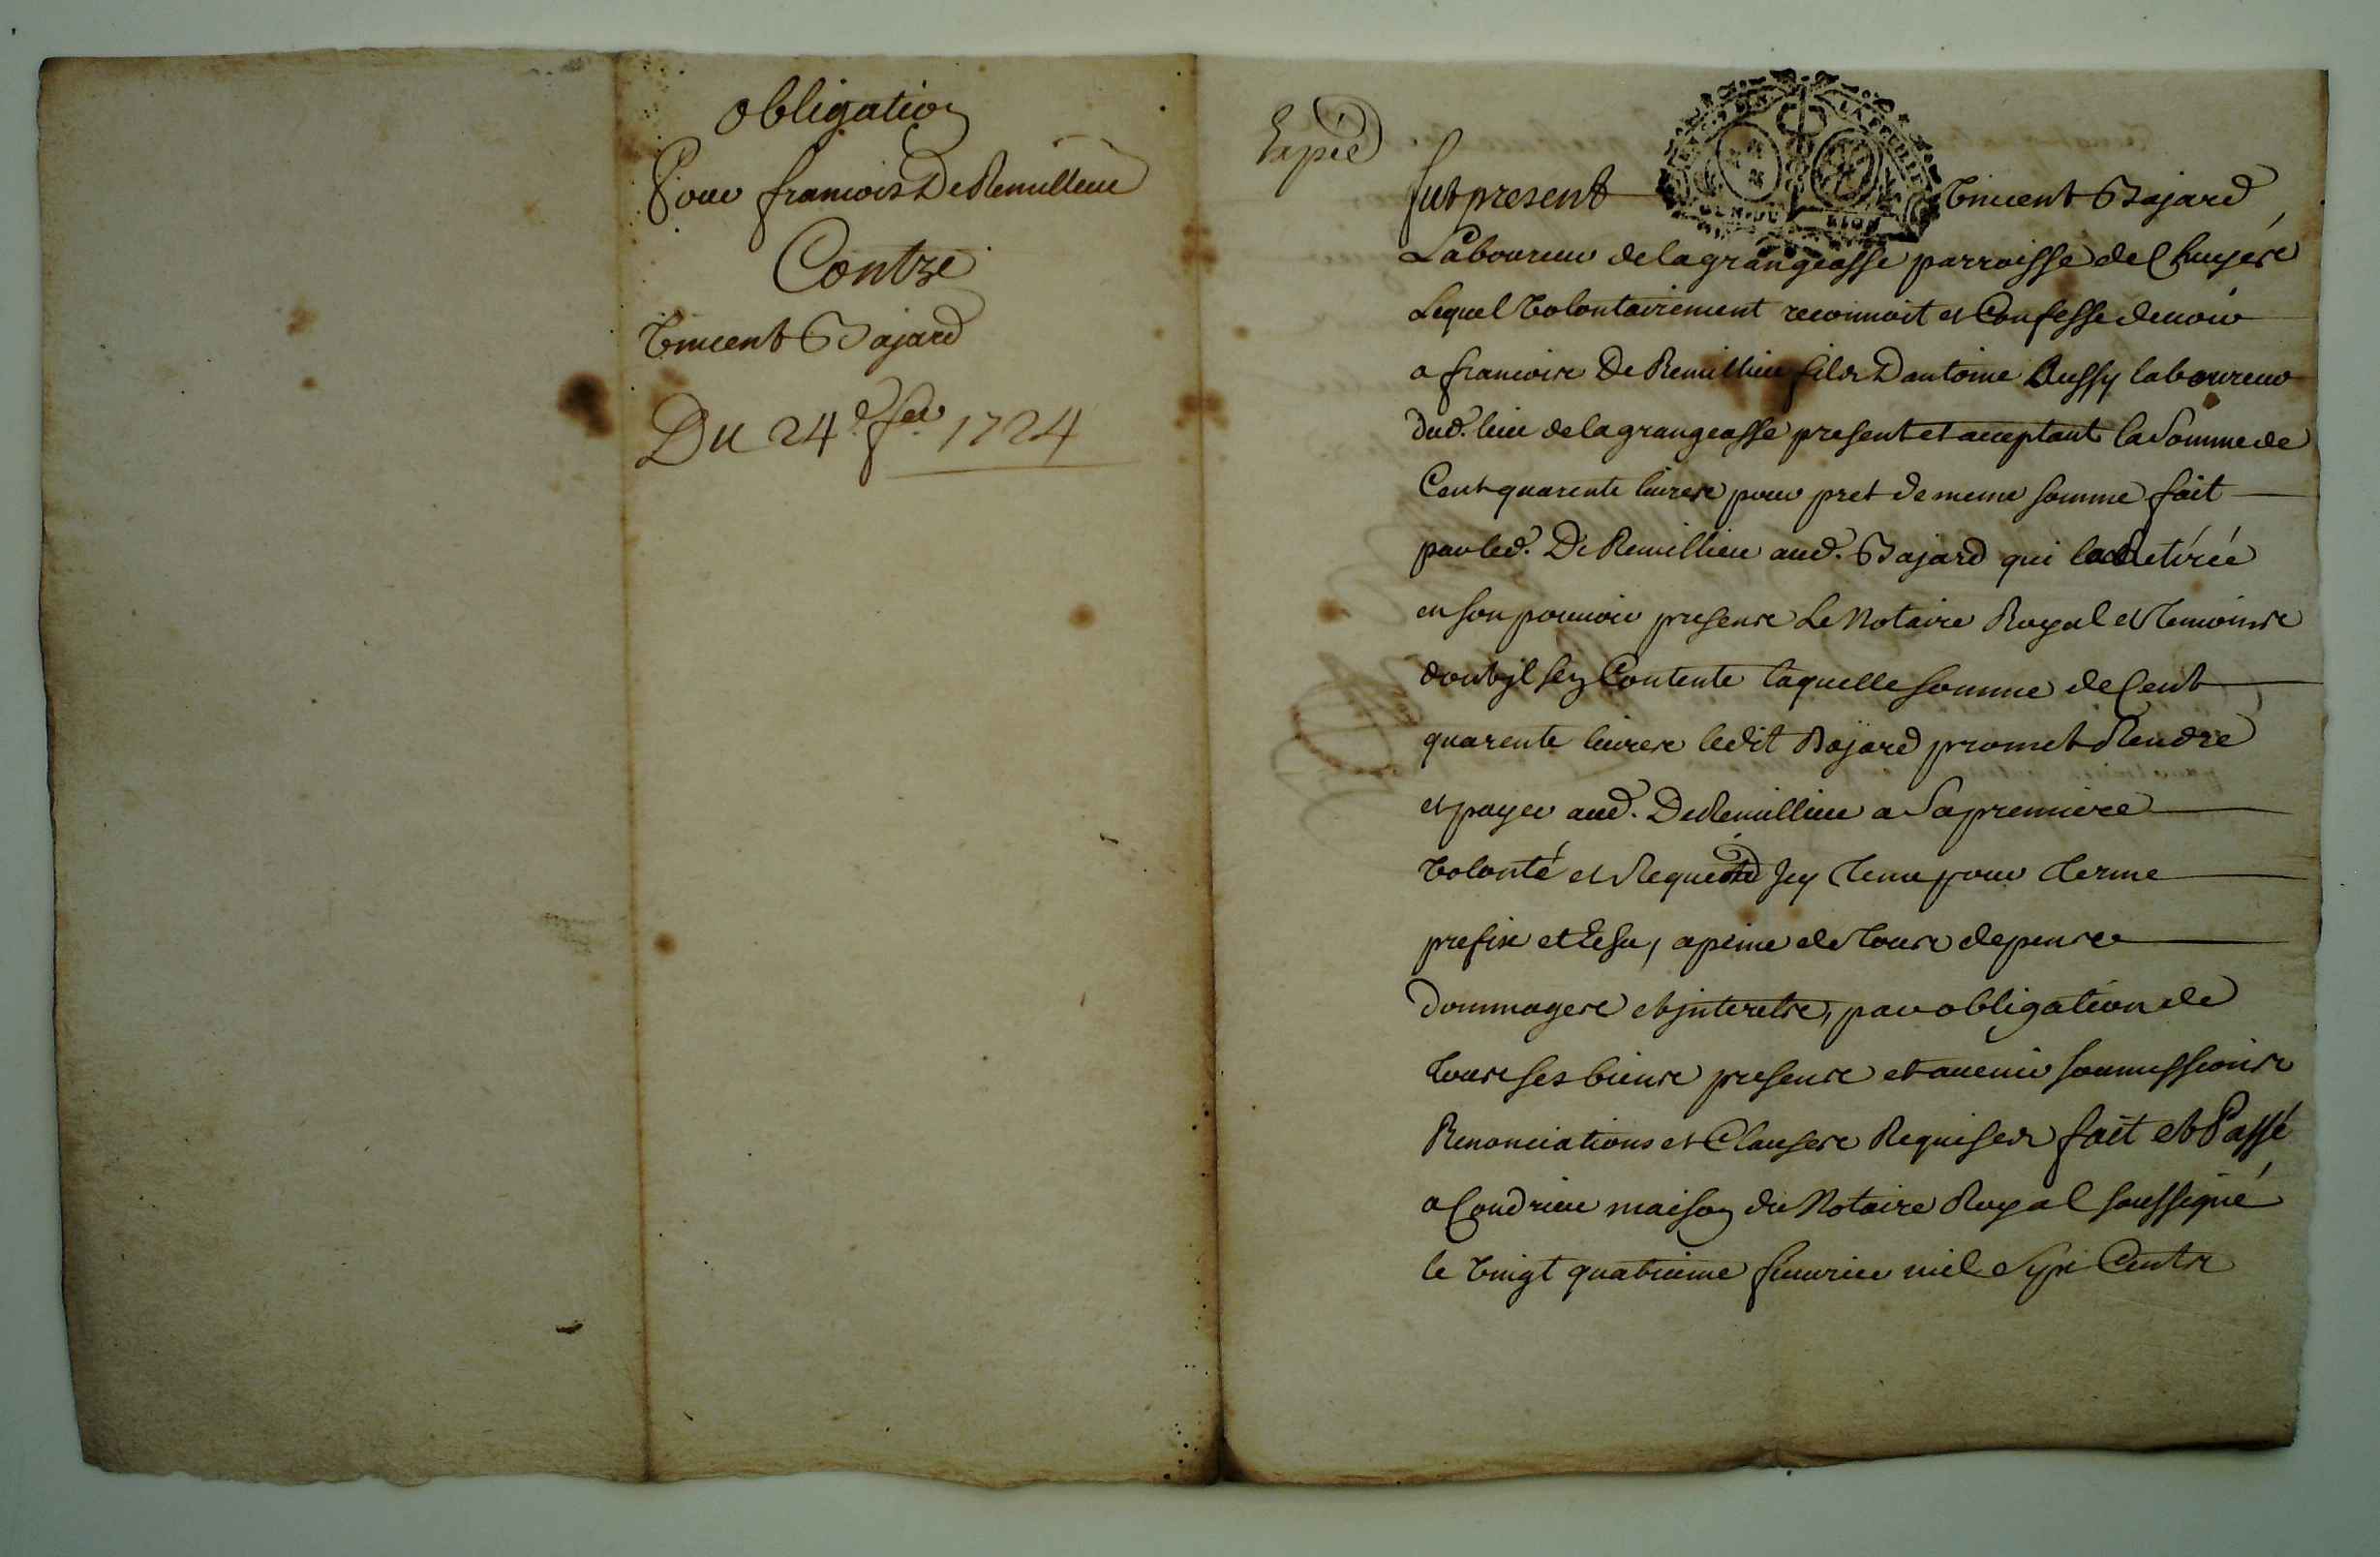 Obligation
Pour francois De Remillieu
Contre
Vincent Bajard
Du 24e. fev. 1724
Expié
GEN. DE LION
fut present Vincent Bajard
Laboureur de lagrangeasse parroisse de Chuyers
Lequel volontairement reconnoit et Confesse devoir
a francois De Remillieu fils D'antoine Bussy laboureur
dud. lieu de lagrangeasse present et acceptant la Somme de
Cent quarente livres pour pret de meme somme fait
par led. De Remillieu aud. Bajard qui la Retirée
en son pouvoir presens Le Notaire Royal et temoins
dont jl sen Contente laquelle somme de Cent
quarente livres ledit Bajard promet Rendre
et payer aud. De Remillieu a Sa premiere
volonté et Requeste Jcy tenu pour terme
prefix et , a peine de tous depens
dommages et jnterets, par obligation de
tous ses biens presens et avenir soumissions
Renonciations et Clauses Requises fait et Passé
a Condrieu maison du Notaire Royal soussigné
le vingt quatrieme fevrier mil Sept Cents